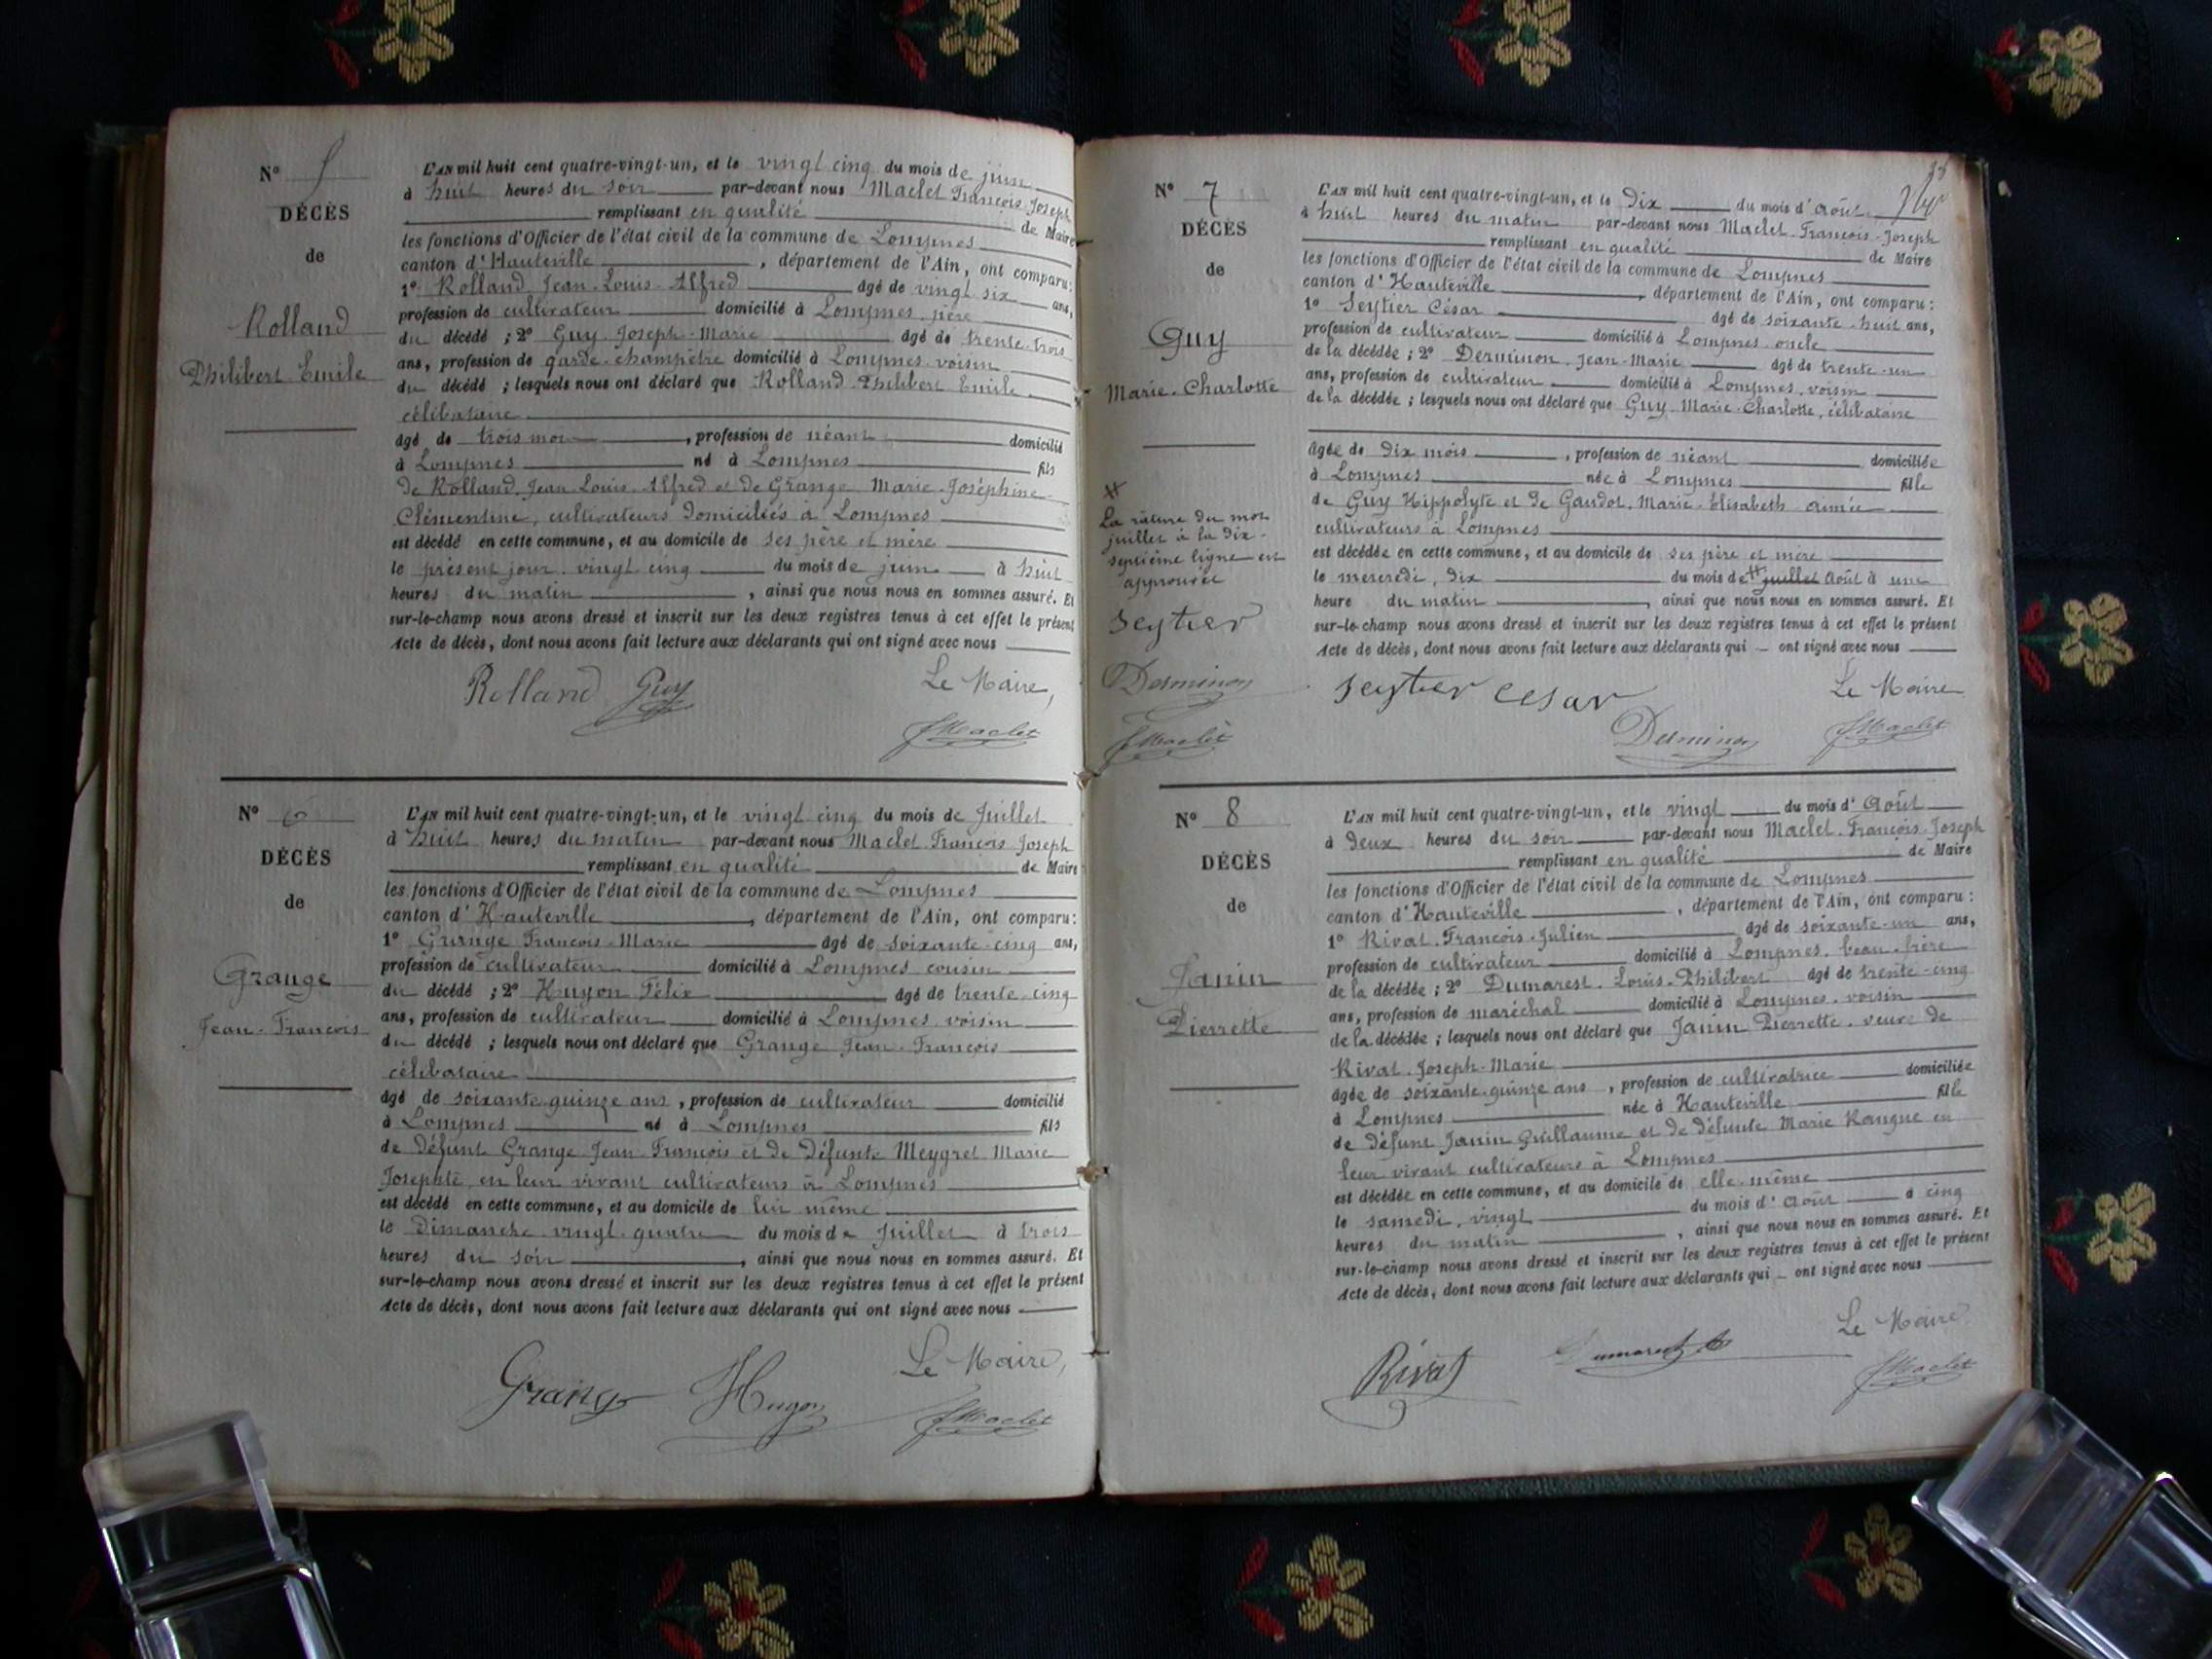 N° 5
DÉCÈS
de
Rolland
Philibert Emile
L'AN mil huit cent quatre-vingt-un, et le vingt cinq du mois de juin
à huit heures du soir par-devant nous Maclet François Joseph
remplissant en qualité de Maire
les fonctions d'Officier de l'état civil de la commune de Lompnes
canton d'Hauteville, département de l'Ain, ont comparu:
1° Rolland Jean-Louis-Alfred âgé de vingt six ans,
profession de cultivateur domicilié à Lompnes, père
du décédé ; 2° Guy Joseph-Marie âgé de trente-trois
ans, profession de garde-champêtre domicilié à Lompnes, voisin
du décédé ; lesquels nous ont déclaré que Rolland Philibert Emile
célibataire
âgé de trois mois, profession de néant domicilié
à Lompnes né à Lompnes fils
de Rolland Jean Louis Alfred et de Grange Marie Joséphine
Clémentine, cultivateurs domiciliés à Lompnes
est décédé en cette commune, et au domicile de ses père et mère
le présent jour vingt cinq du mois de juin à huit
heures du matin, ainsi que nous nous en sommes assuré. Et
sur-le-champ nous avons dressé et inscrit sur les deux registres tenus à cet effet le présent
Acte de décès, dont nous avons fait lecture aux déclarants qui ont signé avec nous
Rolland Guy Le Maire,
f Maclet
N° 6
DÉCÈS
de
Grange
Jean-François
L'AN mil huit cent quatre-vingt-un, et le vingt cinq du mois de Juillet
à huit heures du matin par-devant nous Maclet François Joseph
remplissant en qualité de Maire
les fonctions d'Officier de l'état civil de la commune de Lompnes
canton d'Hauteville, département de l'Ain, ont comparu:
1° Grange François-Marie âgé de soixante-cinq ans,
profession de cultivateur domicilié à Lompnes cousin
du décédé ; 2° Hugon Félix âgé de trente-cinq
ans, profession de cultivateur domicilié à Lompnes voisin
du décédé ; lesquels nous ont déclaré que Grange Jean-François
célibataire
âgé de soixante quinze ans, profession de cultivateur domicilié
à Lompnes né à Lompnes fils
de défunt Grange Jean-François et de défunte Meygret Marie
Josephte en leur vivant cultivateurs à Lompnes
est décédé en cette commune, et au domicile de lui même
le Dimanche vingt quatre du mois de Juillet à trois
heures du soir, ainsi que nous nous en sommes assuré. Et
sur-le-champ nous avons dressé et inscrit sur les deux registres tenus à cet effet le présent
Acte de décès, dont nous avons fait lecture aux déclarants qui ont signé avec nous
Grange Hugon Le Maire,
f Maclet
N° 7
DÉCÈS
de
Guy
Marie-Charlotte
La rature du mot
juillet à la dix-
septième ligne est
approuvée
Seytier
Derminon
f Maclet
L'AN mil huit cent quatre-vingt-un, et le dix du mois d'août
à huit heures du matin par-devant nous Maclet François-Joseph
remplissant en qualité de Maire
les fonctions d'Officier de l'état civil de la commune de Lompnes
canton d'Hauteville, département de l'Ain, ont comparu :
1° Seytier César âgé de soixante-huit ans,
profession de cultivateur domicilié à Lompnes oncle
de la décédée ; 2° Derminon Jean-Marie âgé de trente-un
ans, profession de cultivateur domicilié à Lompnes, voisin
de la décédée ; lesquels nous ont déclaré que Guy Marie-Charlotte, célibataire
âgée de dix mois, profession de néant domiciliée
à Lompnes née à Lompnes fille
de Guy Hippolyte et de Gaudot Marie-Elisabeth aimée
cultivateurs à Lompnes
est décédée en cette commune, et au domicile de ses père et mère
le mercredi, dix du mois de juillet Août à une
heure du matin, ainsi que nous nous en sommes assuré. Et
sur-le-champ nous avons dressé et inscrit sur les deux registres tenus à cet effet le présent
Acte de décès, dont nous avons fait lecture aux déclarants qui ont signé avec nous
Seytier Cesar Le Maire
Derminon f Maclet
N° 8
DÉCÈS
de
Janin
Pierrette
L'AN mil huit cent quatre-vingt-un, et le vingt du mois d'Août
à deux heures du soir par-devant nous Maclet François Joseph
remplissant en qualité de Maire
les fonctions d'Officier de l'état civil de la commune de Lompnes
canton d'Hauteville, département de l'Ain, ont comparu :
1° Rivat François-Julien âgé de soixante-un ans,
profession de cultivateur domicilié à Lompnes, beau-frère
de la décédée ; 2° Dumarest Louis-Philibert âgé de trente-cinq
ans, profession de maréchal domicilié à Lompnes, voisin
de la décédée ; lesquels nous ont déclaré que Janin Pierrette, veuve de
Rivat Joseph-Marie
âgée de soixante-quinze ans, profession de cultivatrice domiciliée
à Lompnes née à Hauteville fille
de défunt Janin Guillaume et de défunte Marie Rangue en
leur vivant cultivateurs à Lompnes
est décédée en cette commune, et au domicile de elle-même
le samedi, vingt du mois d'Août à cinq
heures du matin, ainsi que nous nous en sommes assuré. Et
sur-le-champ nous avons dressé et inscrit sur les deux registres tenus à cet effet le présent
Acte de décès, dont nous avons fait lecture aux déclarants qui ont signé avec nous
Rivat Dumarest Le Maire
f Maclet